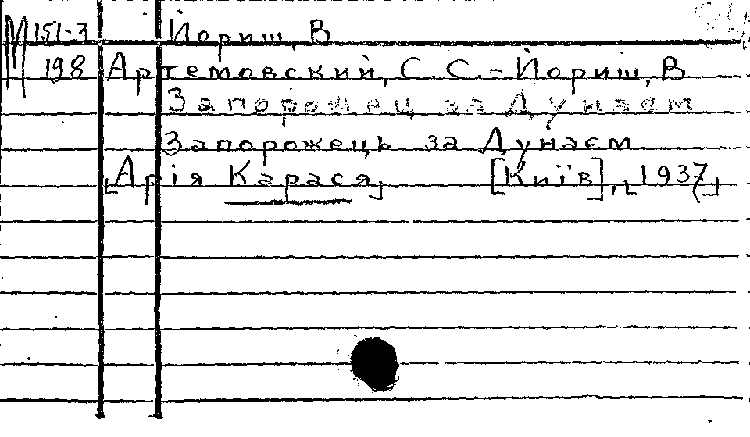 М 151-3 Йориш, В
198 Артемовский, С С.-Йориш, В
Запорожец за Дунаем
Запорожець за Дунаєм
[Арія Карася] [Київ], [1937]